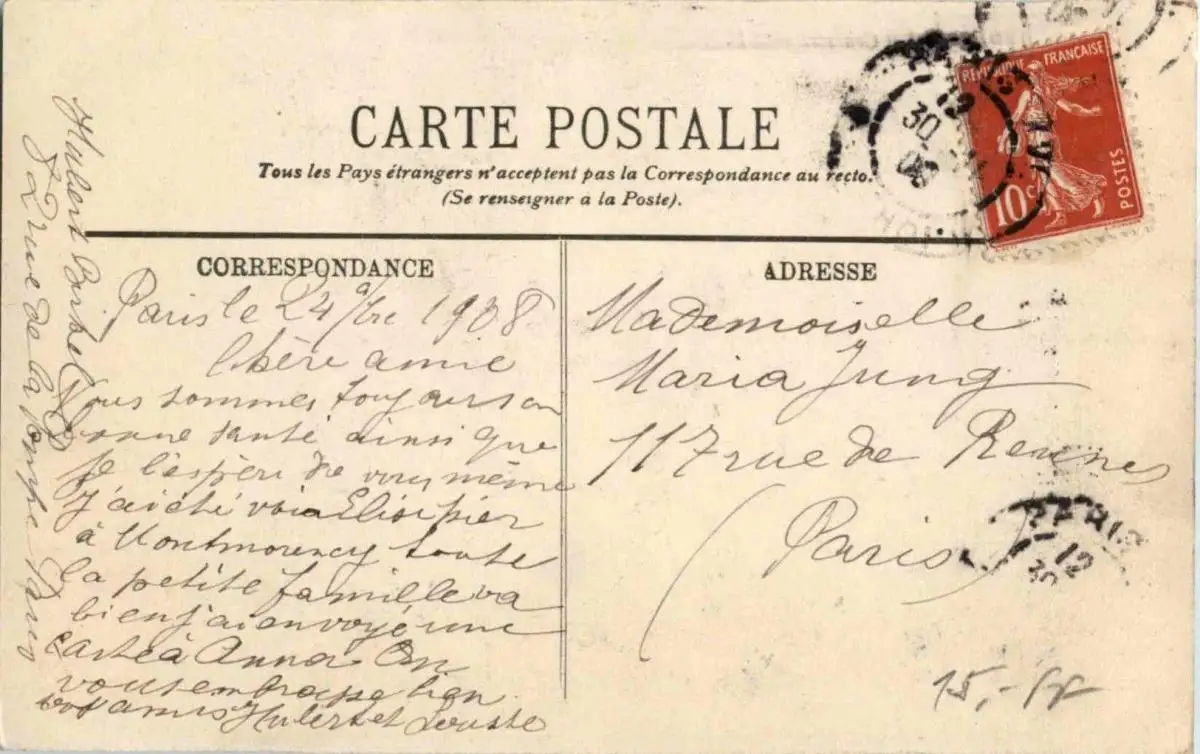 CARTE POSTALE
Tous les Pays étrangers n'acceptent pas la Correspondance au recto.
(Se renseigner à la Poste).
RÉPUBLIQUE FRANÇAISE
10c
POSTES
PARIS
12
30
08
CORRESPONDANCE
Paris le 24 9bre 1908
Chère amie
Nous sommes toujours en
bonne santé ainsi que
je l'espère de vous même
J'ai été voir Elise hier
à Montmorency toute
la petite famille va
bien j'ai envoyé une
carte à Anna On
vous embrasse bien
vos amis Hubert et Louise
Hubert
rue de la Pompe Paris
ADRESSE
Mademoiselle
Maria Jung
117 rue de Rennes
(Paris)
PARIS
12
30
15,- FF